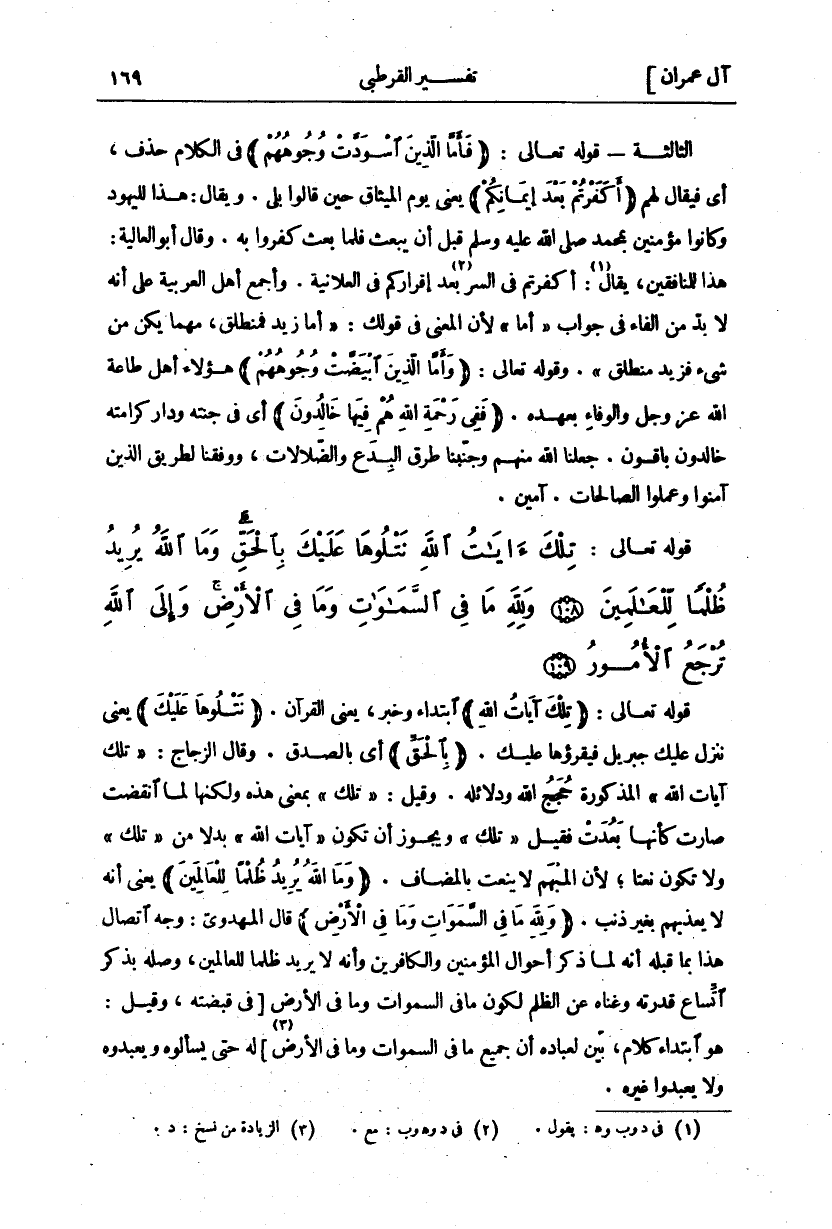 آل عمران] تفسير القرطبى ١٦٩
الثالثة – قوله تعالى : ﴿ فَأَمَّا الَّذِينَ ٱسْوَدَّتْ وُجُوهُهُمْ ﴾ فى الكلام حذف ،
أى فيقال لهم ﴿ أَكَفَرْتُمْ بَعْدَ إِيمَانِكُمْ ﴾ يعنى يوم الميثاق حين قالوا بلى . ويقال : هذا لليهود
وكانوا مؤمنين بمحمد صلى الله عليه وسلم قبل أن يبعث فلما بعث كفروا به . وقال أبو العالية :
هذا للمنافقين ، يقال(١) : أكفرتم فى السر بعد(٢) إقراركم فى العلانية . وأجمع أهل العربية على أنه
لا بدّ من الفاء فى جواب « أما » لأن المعنى فى قولك : « أما زيد فمنطلق ، مهما يكن من
شىء فزيد منطلق » . وقوله تعالى : ﴿ وَأَمَّا الَّذِينَ ٱبْيَضَّتْ وُجُوهُهُمْ ﴾ هؤلاء أهل طاعة
الله عز وجل والوفاء بعهده . ﴿ فَفِى رَحْمَةِ اللهِ هُمْ فِيهَا خَالِدُونَ ﴾ أى فى جنته ودار كرامته
خالدون باقون . جعلنا الله منهم وجنّبنا طرق البِدَع والضّلالات ، ووفقنا لطريق الذين
آمنوا وعملوا الصالحات . آمين .
قوله تعالى : تِلْكَ ءَايَٰتُ ٱللَّهِ نَتْلُوهَا عَلَيْكَ بِٱلْحَقِّ ۗ وَمَا ٱللَّهُ يُرِيدُ
ظُلْمًا لِّلْعَٰلَمِينَ ١٠٨ وَلِلَّهِ مَا فِى ٱلسَّمَٰوَٰتِ وَمَا فِى ٱلْأَرْضِ ۚ وَإِلَى ٱللَّهِ
تُرْجَعُ ٱلْأُمُورُ ١٠٩
قوله تعالى : ﴿ تِلْكَ آيَاتُ اللهِ ﴾ ٱبتداء وخبر ، يعنى القرآن . ﴿ نَتْلُوهَا عَلَيْكَ ﴾ يعنى
ننزل عليك جبريل فيقرؤها عليك . ﴿ بِٱلْحَقِّ ﴾ أى بالصدق . وقال الزجاج : « تلك
آيات الله » المذكورة حُجَجُ الله ودلائله . وقيل : « تلك » بمعنى هذه ولكنها لما ٱنقضت
صارت كأنها بَعُدَتْ فقيل « تلك » ويجوز أن تكون « آيات الله » بدلا من « تلك »
ولا تكون نعتا ؛ لأن المبْهَم لا ينعت بالمضاف . ﴿ وَمَا اللهُ يُرِيدُ ظُلْمًا لِلْعَالَمِينَ ﴾ يعنى أنه
لا يعذبهم بغير ذنب . ﴿ وَلِلهِ مَا فِى السَّمَوَاتِ وَمَا فِى الْأَرْضِ ﴾ قال المهدوىّ : وجه ٱتصال
هذا بما قبله أنه لما ذكر أحوال المؤمنين والكافرين وأنه لا يريد ظلما للعالمين ، وصله بذكر
ٱتّساع قدرته وغناه عن الظلم لكون مافى السموات وما فى الأرض [ فى قبضته ، وقيل :
هو ٱبتداء كلام ، بيّن لعباده أن جميع ما فى السموات وما فى الأرض(٣) ] له حتى يسألوه ويعبدوه
ولا يعبدوا غيره .
(١) فى د وب وه : يقول . (٢) فى د وه وب : مع . (٣) الزيادة من نسخ : د .